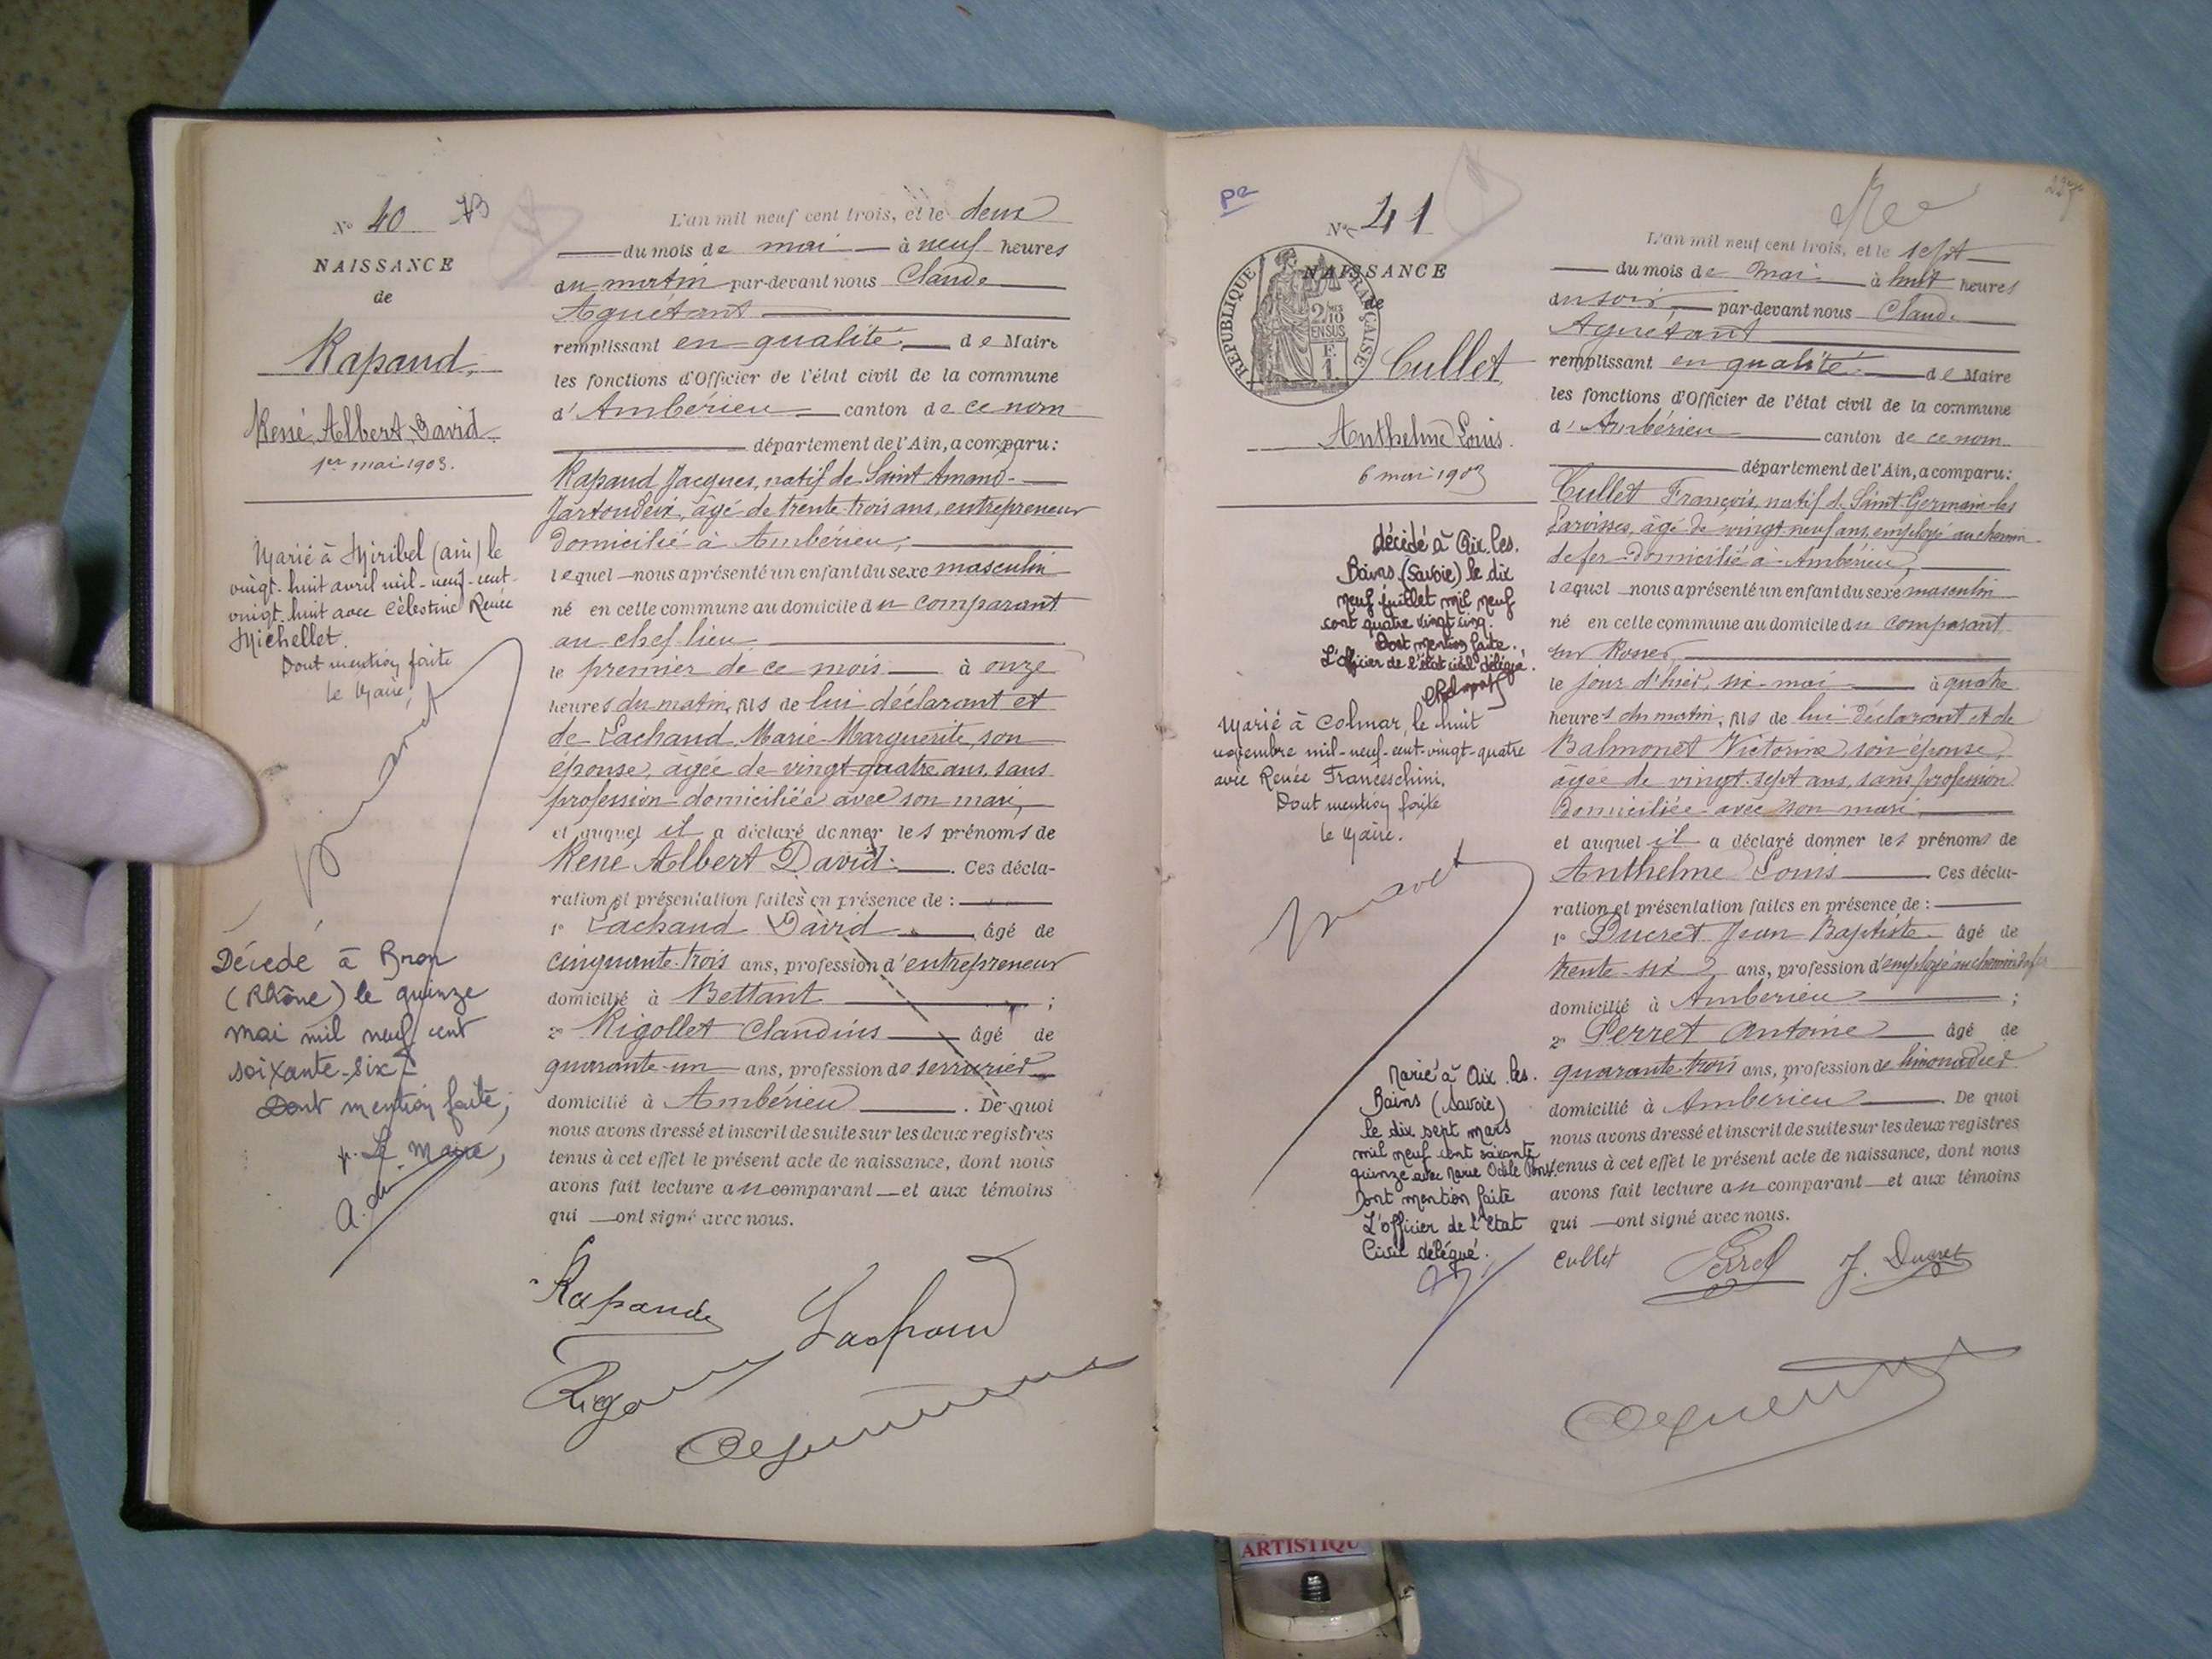 N° 40
NAISSANCE
de
Rapaud,
René Albert David
1er mai 1903.
Marié à Miribel (ain) le
vingt-huit avril mil-neuf-cent-
vingt-huit avec Célestine Renée
Michellet.
Dont mention faite
le Maire,
Décédé à Bron
(Rhône) le quinze
mai mil neuf cent
soixante-six
Dont mention faite,
p. Le Maire,
L'an mil neuf cent trois, et le deux
du mois de mai à neuf heures
du matin par-devant nous Claude
Aguétant
remplissant en qualité de Maire
les fonctions d'Officier de l'état civil de la commune
d'Ambérieu canton de ce nom
département de l'Ain, a comparu :
Rapaud Jacques, natif de Saint Amand-
Jartoudeix, âgé de trente-trois ans, entrepreneur
domicilié à Ambérieu,
lequel nous a présenté un enfant du sexe masculin
né en cette commune au domicile du comparant
au chef-lieu
le premier de ce mois à onze
heures du matin, fils de lui déclarant et
de Lachaud Marie-Marguerite, son
épouse, âgée de vingt-quatre ans, sans
profession domiciliée avec son mari,
et auquel il a déclaré donner les prénoms de
René Albert David. Ces décla-
ration et présentation faites en présence de :
1° Lachaud David âgé de
cinquante-trois ans, profession d'entrepreneur
domicilié à Bettant ;
2° Rigollet Claudius âgé de
quarante-un ans, profession de serrurier
domicilié à Ambérieu. De quoi
nous avons dressé et inscrit de suite sur les deux registres
tenus à cet effet le présent acte de naissance, dont nous
avons fait lecture au comparant et aux témoins
qui ont signé avec nous.
Rapaud
Lachaud
N° 41
NAISSANCE
de
RÉPUBLIQUE FRANÇAISE
2/10
EN SUS
Cullet
Anthelme Louis.
6 mai 1903
décédé à Aix les.
Bains (Savoie) le dix
neuf juillet mil neuf
cent quatre vingt cinq.
Dont mention faite.
L'officier de l'état civil délégué.
Marié à Colmar, le huit
novembre mil-neuf-cent-vingt-quatre
avec Renée Franceschini.
Dont mention faite
le Maire.
Marié à Aix. les.
Bains (Savoie)
le dix sept mars
mil neuf cent soixante
quinze avec Marie Odile
Dont mention faite
L'officier de l'Etat
Civil délégué.
L'an mil neuf cent trois, et le sept
du mois de mai à huit heures
du soir par-devant nous Claude
Aguétant
remplissant en qualité de Maire
les fonctions d'Officier de l'état civil de la commune
d'Ambérieu canton de ce nom
département de l'Ain, a comparu :
Cullet François, natif de Saint-Germain-les
Paroisses, âgé de vingt-neuf ans, employé au chemin
de fer domicilié à Ambérieu,
lequel nous a présenté un enfant du sexe masculin
né en cette commune au domicile du comparant
le jour d'hier, six mai à quatre
heures du matin, fils de lui déclarant et de
Balmonet Victorine, son épouse,
âgée de vingt-sept ans, sans profession
domiciliée avec son mari,
et auquel il a déclaré donner les prénoms de
Anthelme Louis Ces décla-
ration et présentation faites en présence de :
1° Ducret Jean Baptiste âgé de
trente-six ans, profession d'employé au chemin de fer
domicilié à Ambérieu ;
2° Perret Antoine âgé de
quarante-trois ans, profession de limonadier
domicilié à Ambérieu. De quoi
nous avons dressé et inscrit de suite sur les deux registres
tenus à cet effet le présent acte de naissance, dont nous
avons fait lecture au comparant et aux témoins
qui ont signé avec nous.
Cullet Perret J. Ducret
ARTISTIQU